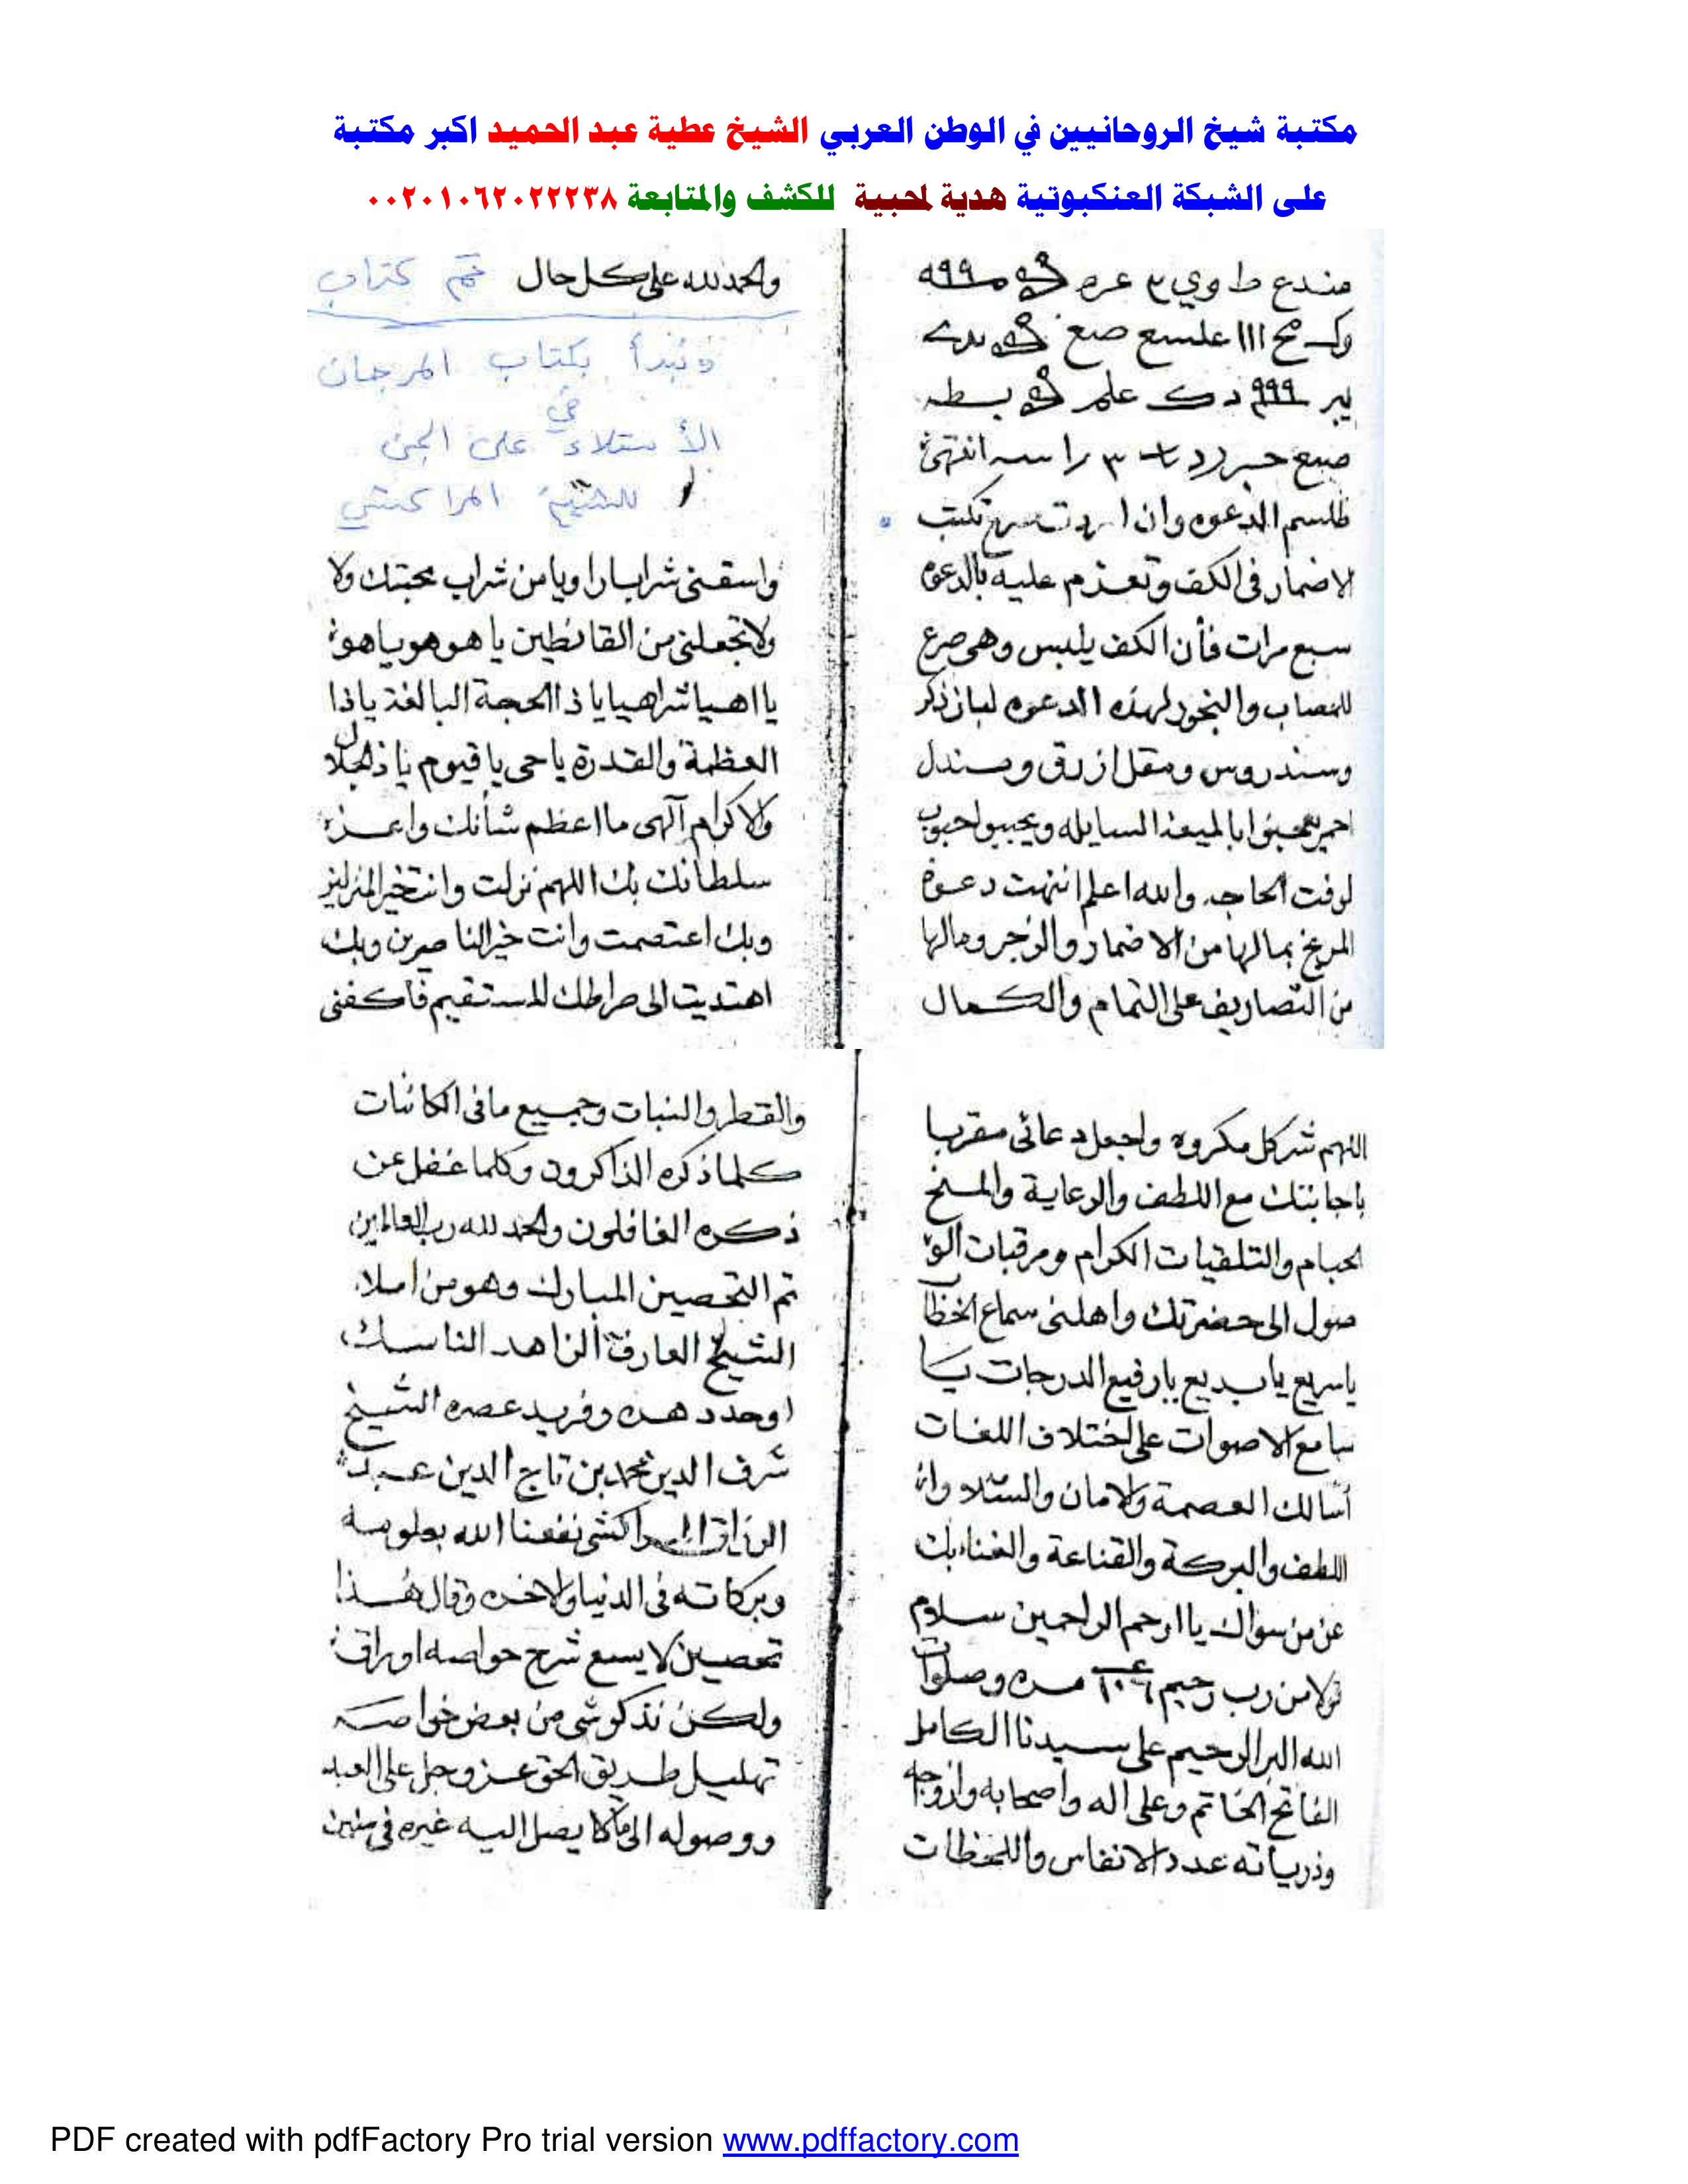 مكتبة شيخ الروحانيين في الوطن العربي الشيخ عطية عبد الحميد اكبر مكتبة
على الشبكة العنكبوتية هدية لمحبية للكشف والمتابعة ٠٠٢٠١٠٦٢٠٢٢٢٣٨
انتهى
طلسم الدعوه وان تكتب
الاضمار فى الكف وتعزم عليه بالدعوه
سبع مرات فأن الكف يلبس وهى صرع
للمصاب والبخور لهذه الدعوه لبان ذكر
وسندروس ومقل ازرق وصندل
احمر بالميعة السايله
لوقت الحاجه والله اعلم انتهت دعوة
المريخ بمالها من الاضمار والزجر ومالها
من التصاريف على التمام والكمال
والحمد لله على كل حال تم كتاب
ونبدأ بكتاب المرجان
في
الأستلاء على الجن
للشيخ المراكشي
واسقنى شرابا راويا من شراب محبتك ولا
ولا تجعلنى من القانطين يا هو هو ياهو
يا اهيا شراهيا يا ذا الحجة البالغة ياذا
العظمة والقدرة ياحى ياقيوم ياذالجلال
والاكرام آلهى ما اعظم شأنك واعز
سلطانك بك اللهم نزلت وانت خير المنزلين
وبك اعتصمت وانت خير الناصرين وبك
اهتديت الى صراطك المستقيم فأكفنى
اللهم شر كل مكروه واجعل دعائى مقربا
باجابتك مع اللطف والرعاية
والتلقيات الكرام ومرقبات الو
صول الى حضرتك واهلنى سماع الخطاب
ياسريع يابديع يارفيع الدرجات يا
سامع الاصوات على اختلاف اللغات
أسالك العصمة والامان
اللطف والبركة والقناعة والغناء بك
عن من سواك يا ارحم الراحمين سلام
قولا من رب رحيم مره وصلوات
الله البر الرحيم على سيدنا الكامل
الفاتح الخاتم وعلى اله واصحابه وازوجه
وذرياته عدد الانفاس واللحظات
والقطر والنبات وجميع مافى الكائنات
كلما ذكره الذاكرون وكلما غفل عن
ذكره الغافلون والحمد لله رب العالمين
تم التحصين المبارك وهو من املاء
الشيخ العارف الزاهد الناسك
اوحد دهره وفريد عصره الشيخ
شرف الدين محمد بن تاج الدين عبد
الرزاق المراكشى نفعنا الله بعلومه
وبركاته فى الدنيا والاخره وقال هذا
تحصين لا يسع شرح خواصه اوراق
ولكن نذكر شى من بعض خواصه
تهليل طريق الحق عز وجل على العبد
ووصوله الى مالا يصل اليه غيره فى سنين
PDF created with pdfFactory Pro trial version www.pdffactory.com